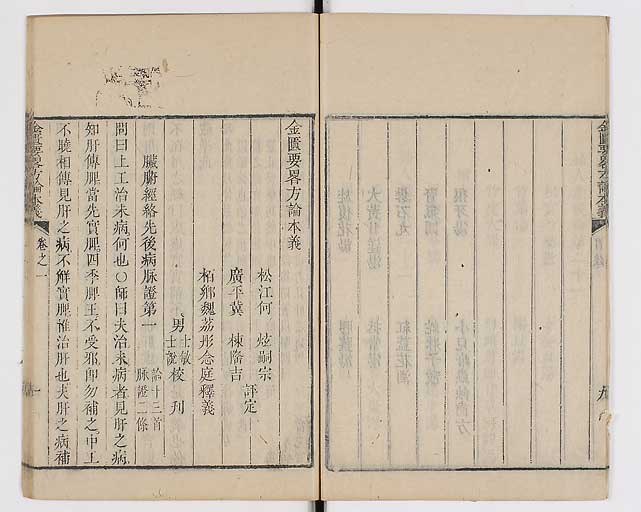 金匱要畧方論本義
九
金匱要畧方論本義
松江何 炫嗣宗
廣平冀 棟隆吉
評定
柏鄉魏荔彤念庭釋義
男 士敏 士說 校刊
臟腑經絡先後病脉證第一 論十三首 脉證二條
問曰上工治未病何也〇師曰夫治未病者見肝之病
知肝傳脾當先實脾四季脾王不受邪卽勿補之中工
不曉相傳見肝之病不解實脾惟治肝也夫肝之病補
金匱要畧方論本義
卷之一
一